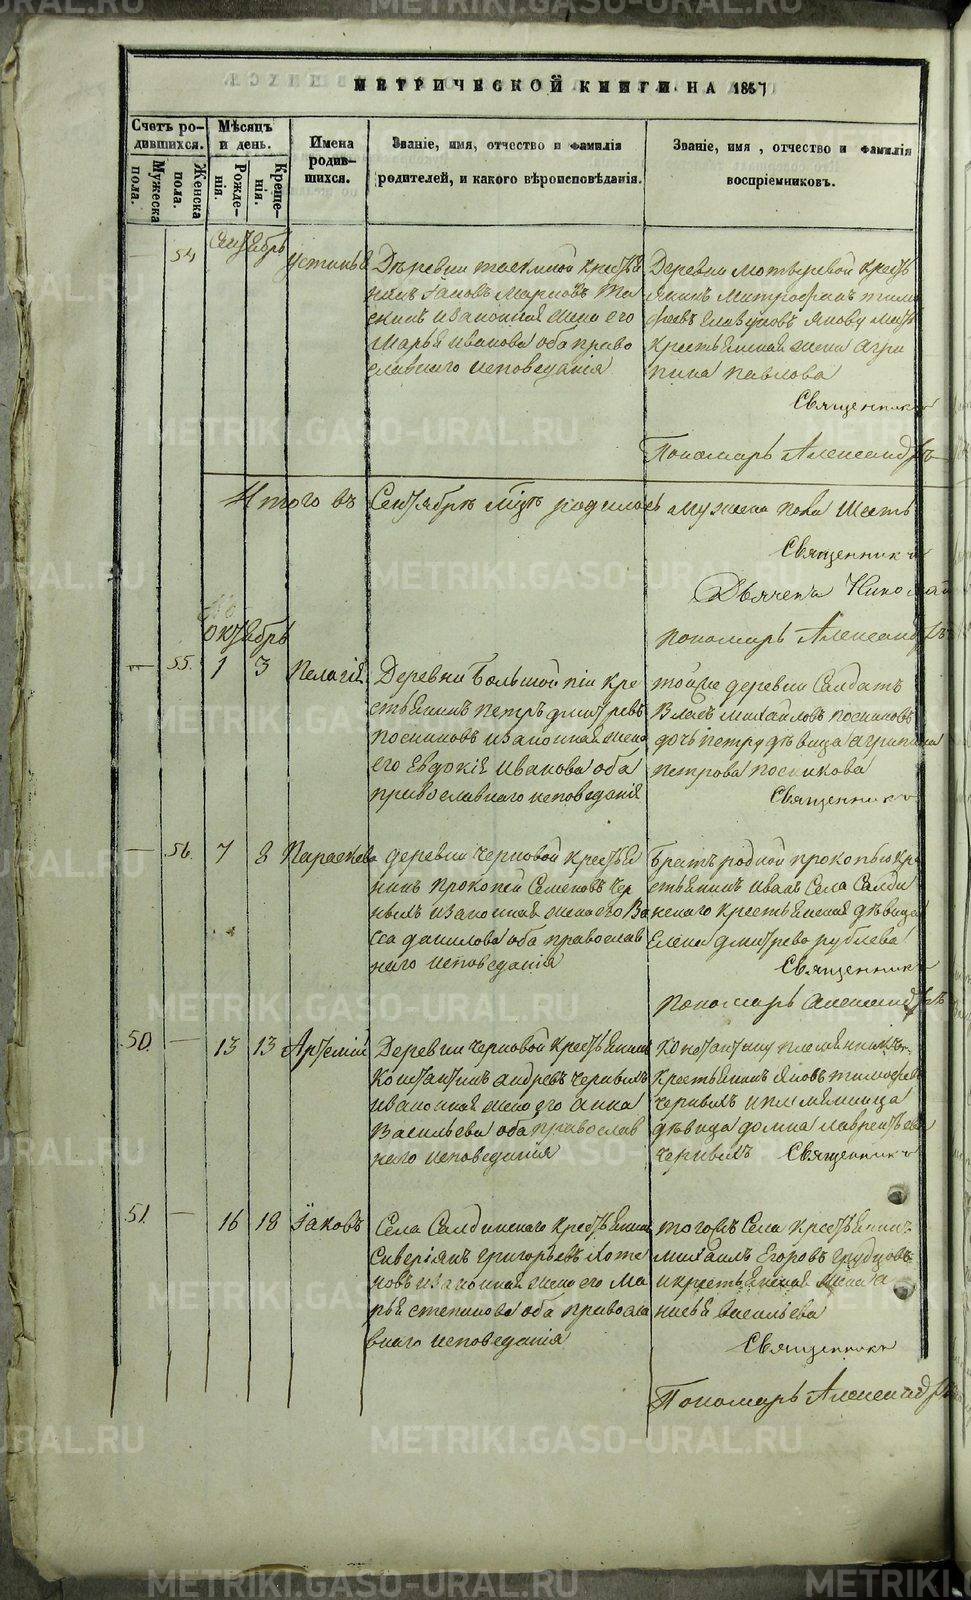 МЕТРИЧЕСКОЙ КНИГИ НА 1857
Счетъ ро-
дившихся.
Мужеска
пола.
Женска
пола.
Мѣсяцъ
и день.
Рожде-
нія.
Креще-
нія.
Имена
родив-
шихся.
Званіе, имя, отчество и фамилія
родителей, и какого вѣроисповѣданія.
Званіе, имя, отчество и фамилія
воспріемниковъ.
Сентябрь
— 54 Устинья
Деревни таскиной кресть
нинъ Іаковъ Марковъ Та
скинъ изаконная жена его
Марья иванова оба право
славнаго исповеданія
Деревни кресть
янинъ Митрофанъ тимо
феевъ
крестьянская жена агри
пина павлова
Священникъ
Пономарь Александръ
Итого въ Сентябрѣ мцѣ родилось мужска пола шесть
Священникъ
Дьячекъ Николай
пономарь Александръ
октябрь
— 55. 1 3 Пелагія
Деревни Большой піи кре
стьянинъ петръ дмитревъ
посниковъ изаконная жена
его Евдокія Иванова оба
православнаго исповеданія
тойже деревни Салдатъ
Михайловъ посниковъ
дочь петру дѣвица агрипина
петрова посникова
Священникъ
— 56. 7 8 Параскева
деревни черновой крестья
нинъ прокопей Семеновъ чер
ныхъ изаконная жена его Ва
сса данилова оба православ
наго исповеданія
Братъ родной прокопью кре
стьянинъ иванъ Села Салди
нскаго крестьянская дѣвица
Елена дмитрева рублева
Священникъ
пономарь александръ
50. — 13 13 Артемій
Деревни черновой крестьянинъ
Константинъ андревъ черныхъ
изаконная жена его анна
Васильева оба православ
наго исповеданія
Константину племянникъ
крестьянинъ яковъ тимофеевъ
черныхъ иплемянница
дѣвица домна лаврентьева
черныхъ Священникъ
51. — 16 18 Іаковъ
Села Салдинскаго крестьянинъ
Северіянъ григорьевъ
изаконная жена его Ма
рья степанова оба правосла
внаго исповеданія
тогожъ Села крестьянинъ
михаилъ Егоровъ
икрестьянская жена а
нисья Васильева
Священникъ
Пономарь Александръ
METRIKI.GASO-URAL.RU